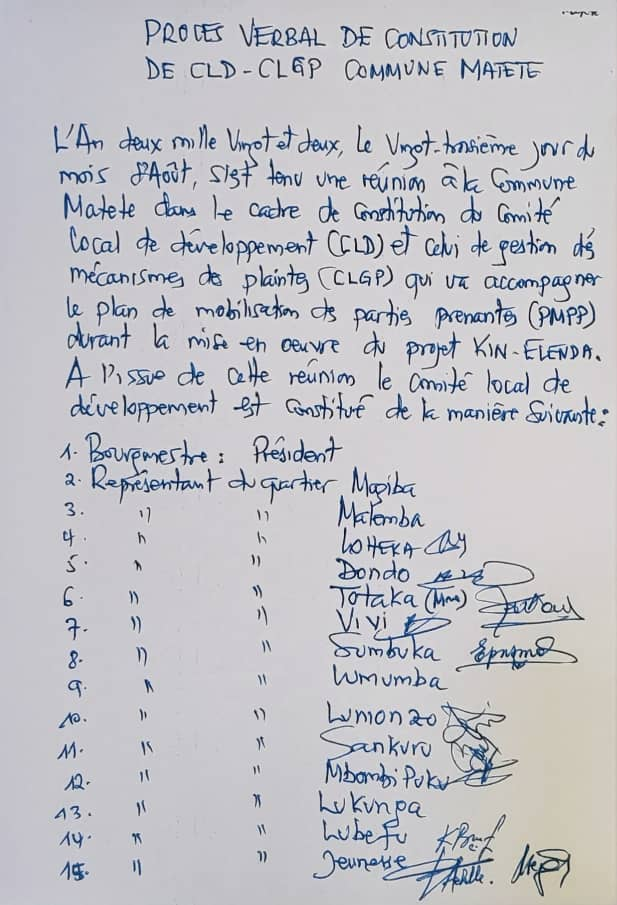 PROCES VERBAL DE CONSTITUTION
DE CLD-CLGP COMMUNE MATETE
L'An deux mille Vingt et deux, le Vingt-troisième jour du
mois d'Août, s'est tenu une réunion à la Commune
Matete dans le cadre de Constitution du Comité
local de développement (CLD) et celui de gestion des
mécanismes de plaintes (CLGP) qui va accompagner
le plan de mobilisation des parties prenantes (PMPP)
durant la mise en oeuvre du projet KIN-ELENDA.
A l'issue de cette réunion le Comité local de
développement est constitué de la manière suivante:
1. Bourgmestre : Président
2. Représentant du quartier Maziba
3. " " Malemba
4. " " LOHEKA
5. " " Dondo
6. " " Totaka (Mme)
7. " " Vivi
8. " " Sumbuka
9. " " Lumumba
10. " " Lumonzo
11. " " Sankuru
12. " " Mbombi Puku
13. " " Lukunpa
14. " " Lubefu
15. " " Jeunesse